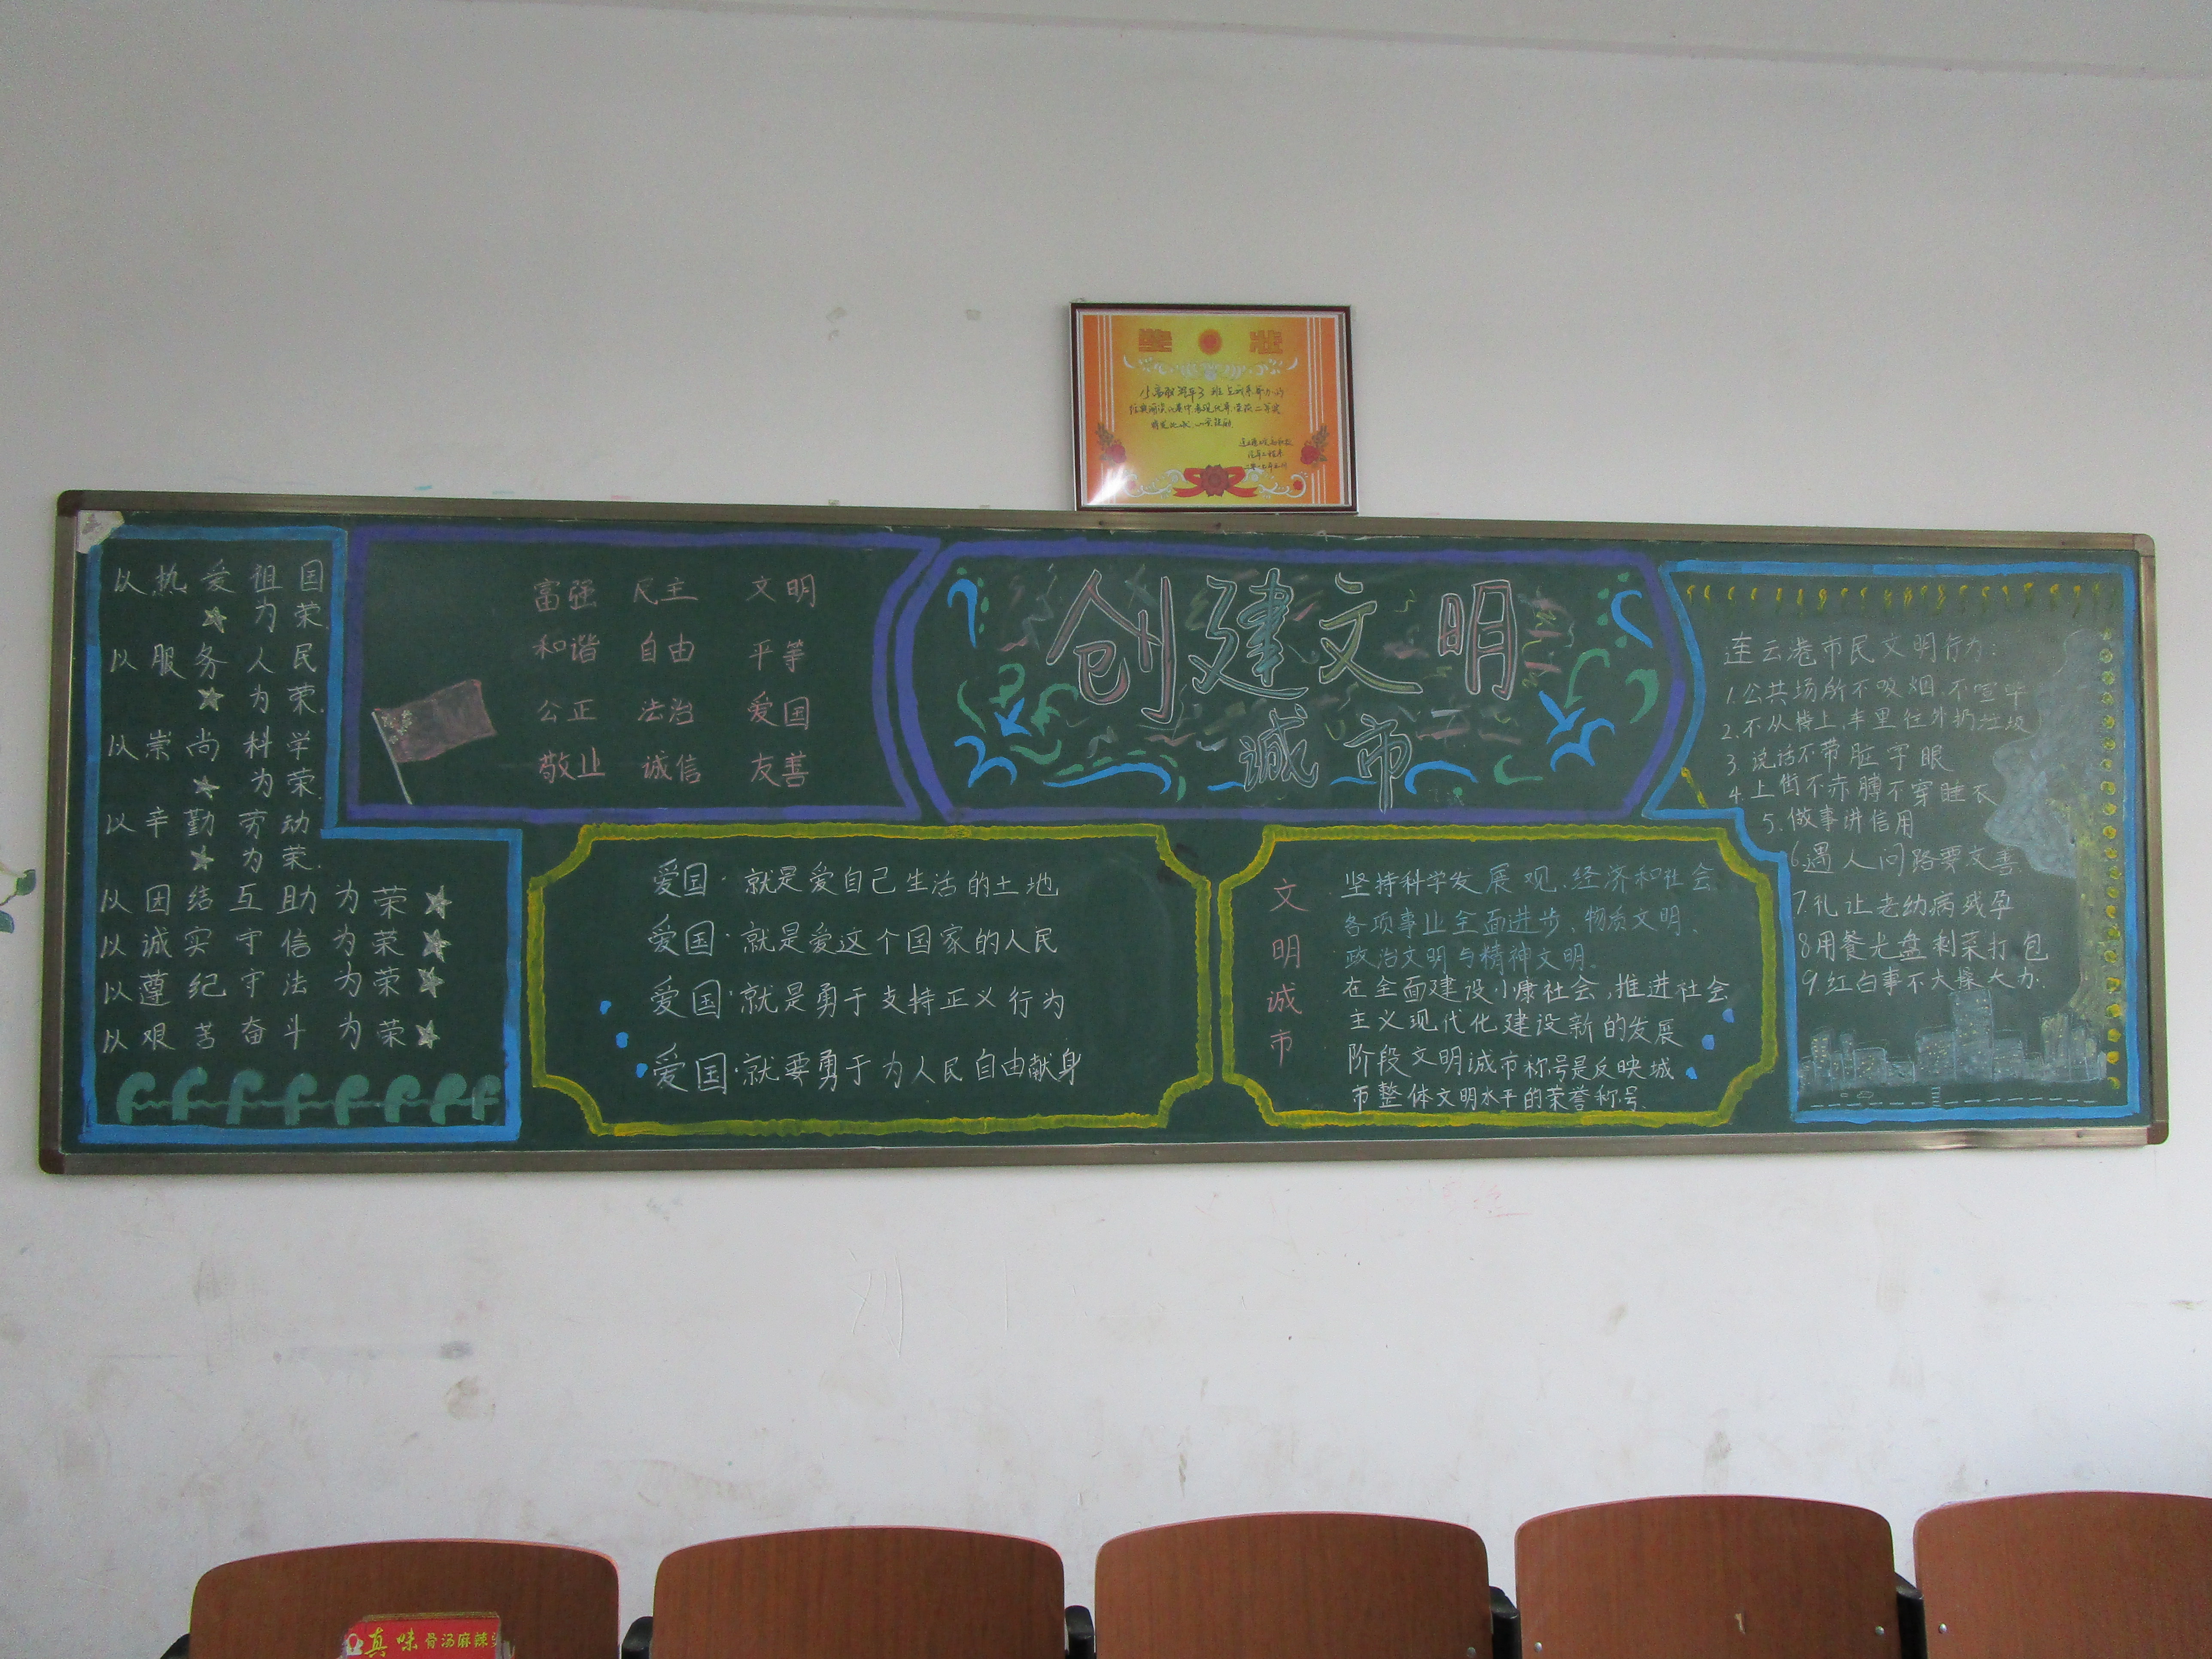 奖状
以热爱祖国
为荣.
以服务人民
为荣.
以崇尚科学
为荣.
以辛勤劳动
为荣.
以团结互助为荣
以诚实守信为荣
以遵纪守法为荣
以艰苦奋斗为荣
富强 民主 文明
和谐 自由 平等
公正 法治 爱国
敬业 诚信 友善
创建文明
诚市
爱国·就是爱自己生活的土地
爱国·就是爱这个国家的人民
爱国·就是勇于支持正义行为
爱国·就要勇于为人民自由献身
文明诚市
坚持科学发展观、经济和社会
各项事业全面进步、物质文明、
政治文明与精神文明.
在全面建设小康社会,推进社会
主义现代化建设新的发展
阶段文明诚市称号是反映城
市整体文明水平的荣誉称号.
连云港市民文明行为:
1.公共场所不吸烟.不喧哗
2.不从楼上、车里往外扔垃圾
3.说话不带脏字眼
4.上街不赤膊不穿睡衣
5.做事讲信用
6.遇人问路要友善
7.礼让老幼病残孕
8用餐光盘剩菜打包
9.红白事不大操大办.
真味骨汤麻辣